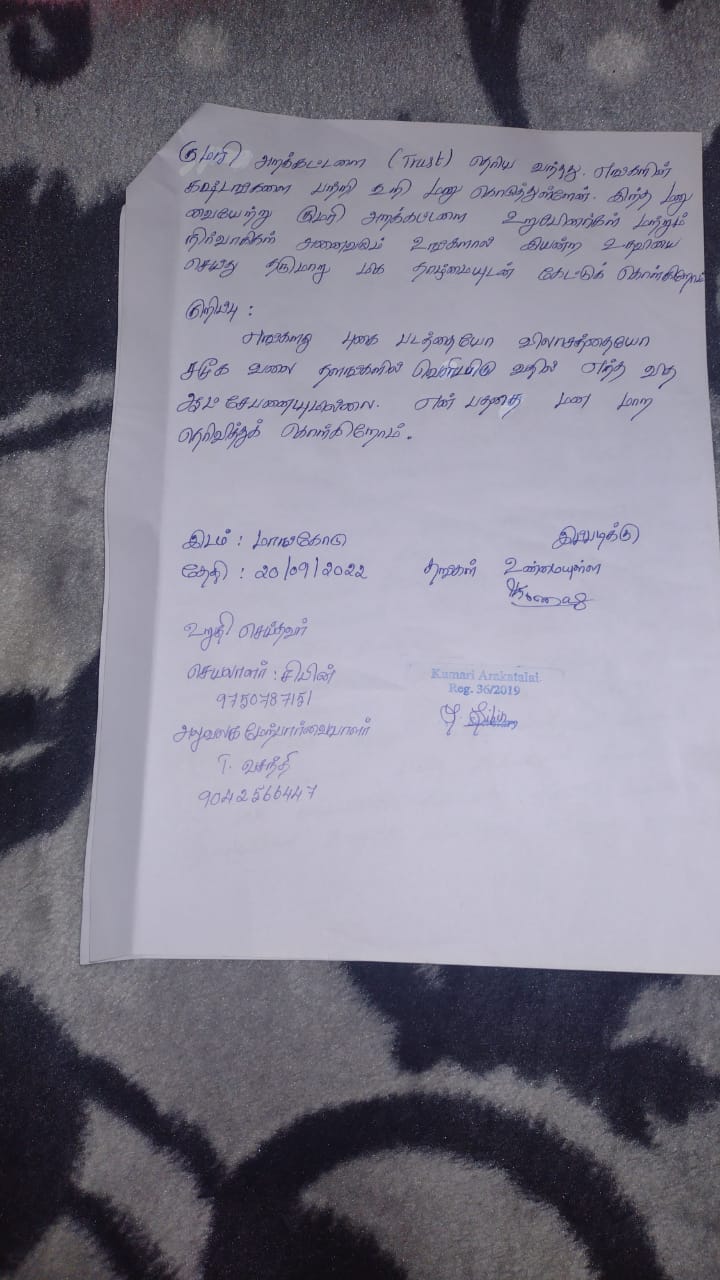 குமரி அறக்கட்டளை (Trust) தெரிய வந்தது. எங்களின்
கஷ்டங்களை பற்றி கூறி மனு கொடுத்துள்ளேன். இந்த மனு
குமரி அறக்கட்டளை உறுப்பினர்கள் மற்றும்
நிர்வாகிகள் அனைவரும் உங்களால் இயன்ற உதவியை
செய்து தருமாறு மிக தாழ்மையுடன் கேட்டுக் கொள்கிறோம்
குறிப்பு :
எங்களது புகை படத்தையோ விலாசத்தையோ
சமூக வளை தளங்களில் வெளியிடு வதில் எந்த வித
ஆட்சேபணையுமில்லை. என் பதனை மன மார
தெரிவித்துக் கொள்கிறோம்.
இடம் : மாங்கோடு இப்படிக்கு
தேதி : 20/09/2022 தங்கள் உண்மையுள்ள
உறுதி செய்தவர்
செயலாளர் : சிபின்
9750787151
Kumari Arakatalai.
Reg. 36/2019
அலுவலக மேற்பார்வையாளர்
T. வசந்தி
9042566447